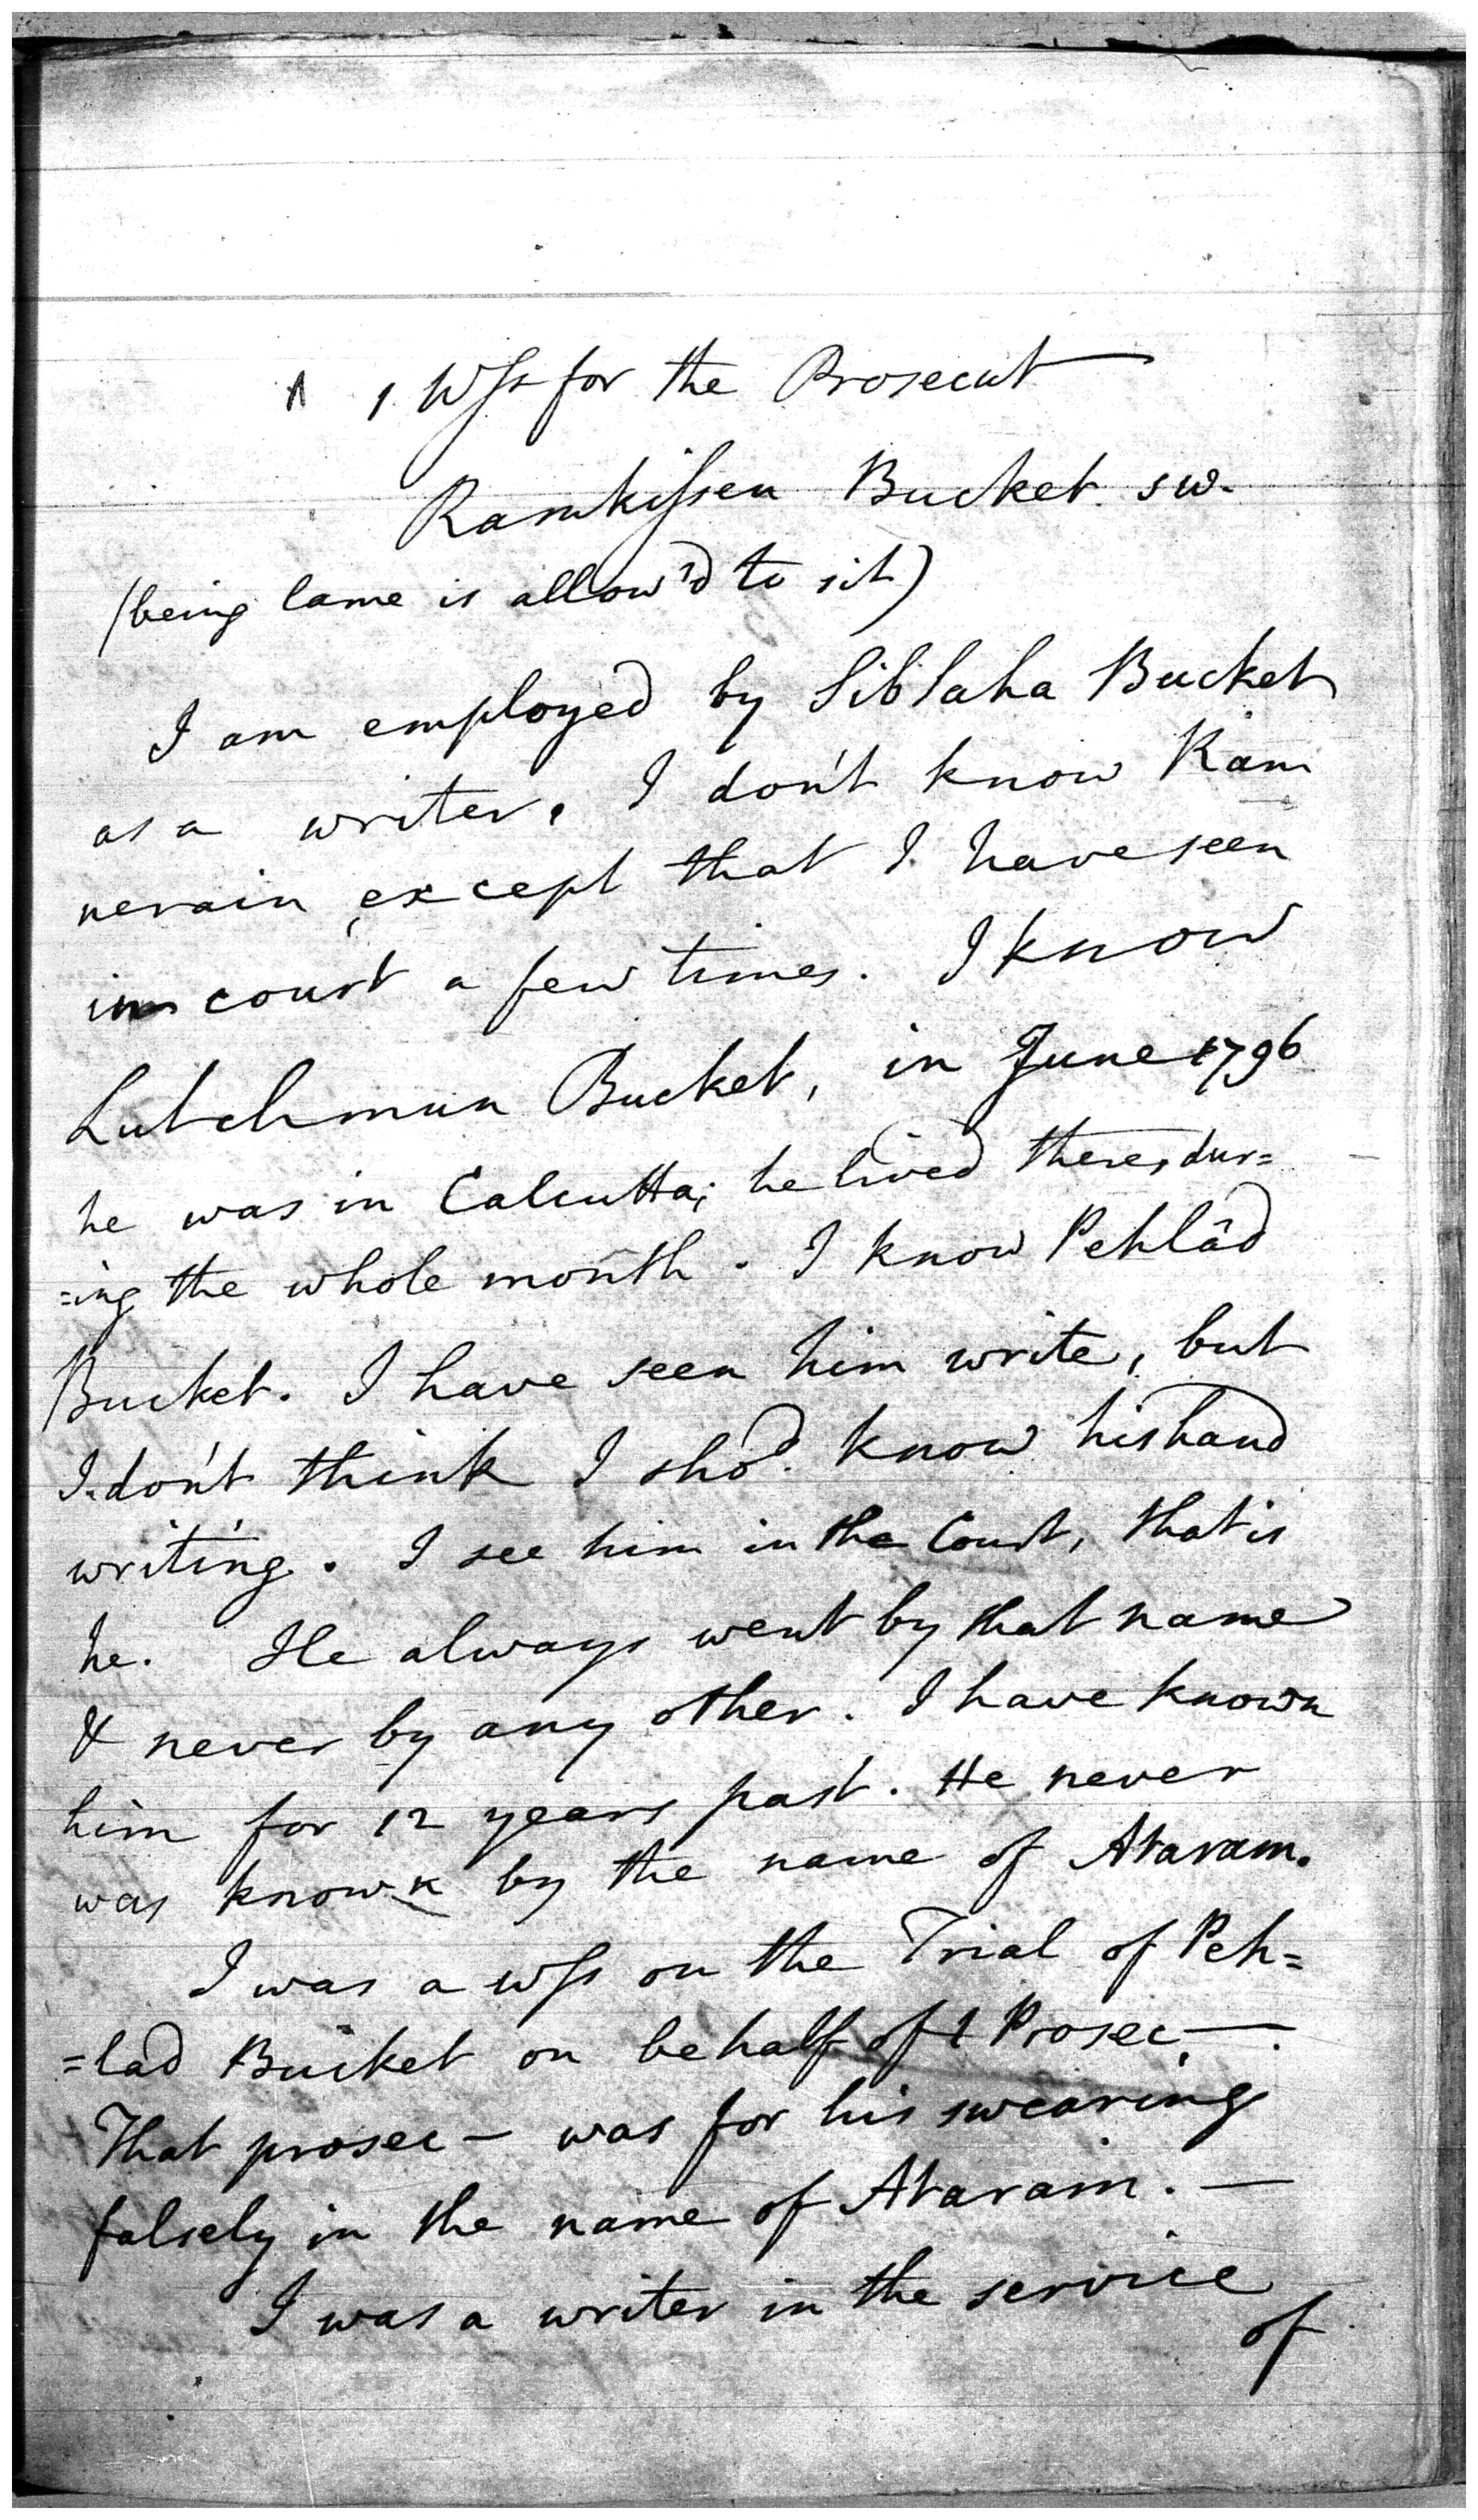 1 Wss for the Prosecut
Ramkissen Bucket sw.
(being lame is allow'd to sit)
I am employed by Siblaha Bucket
as a writer. I don't know Ram
nerain except that I have seen
in court a few times. I know
Lutchmun Bucket, in June 1796
he was in Calcutta; he lived there, dur=
=ing the whole month. I know Pehlâd
Bucket. I have seen him write, but
I don't think I shod. know his hand
writing. I see him in the Court, that is
he. He always went by that name
& never by any other. I have known
him for 12 years past. He never
was known by the name of Ataram.
I was a wss on the Trial of Peh=
=lad Bucket on behalf of t Prosec.—
That prosec— was for his swearing
falsely in the name of Ataram.—
I was a writer in the service
of